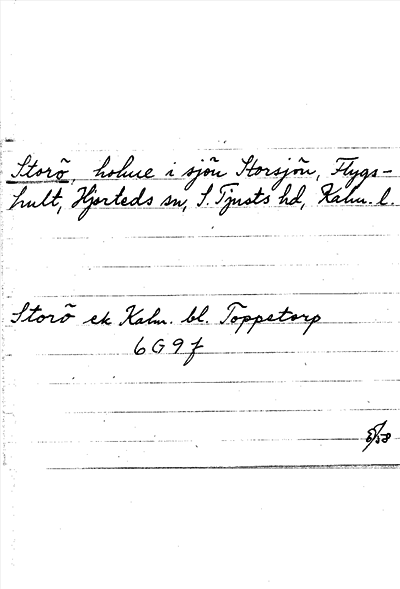 Storö, holme i sjön Storsjön, Flygs-
hult, Hjorteds sn, S. Tjusts hd, Kalm. l.
Storö ek Kalm. bl. Toppetorp
6 G 9 f